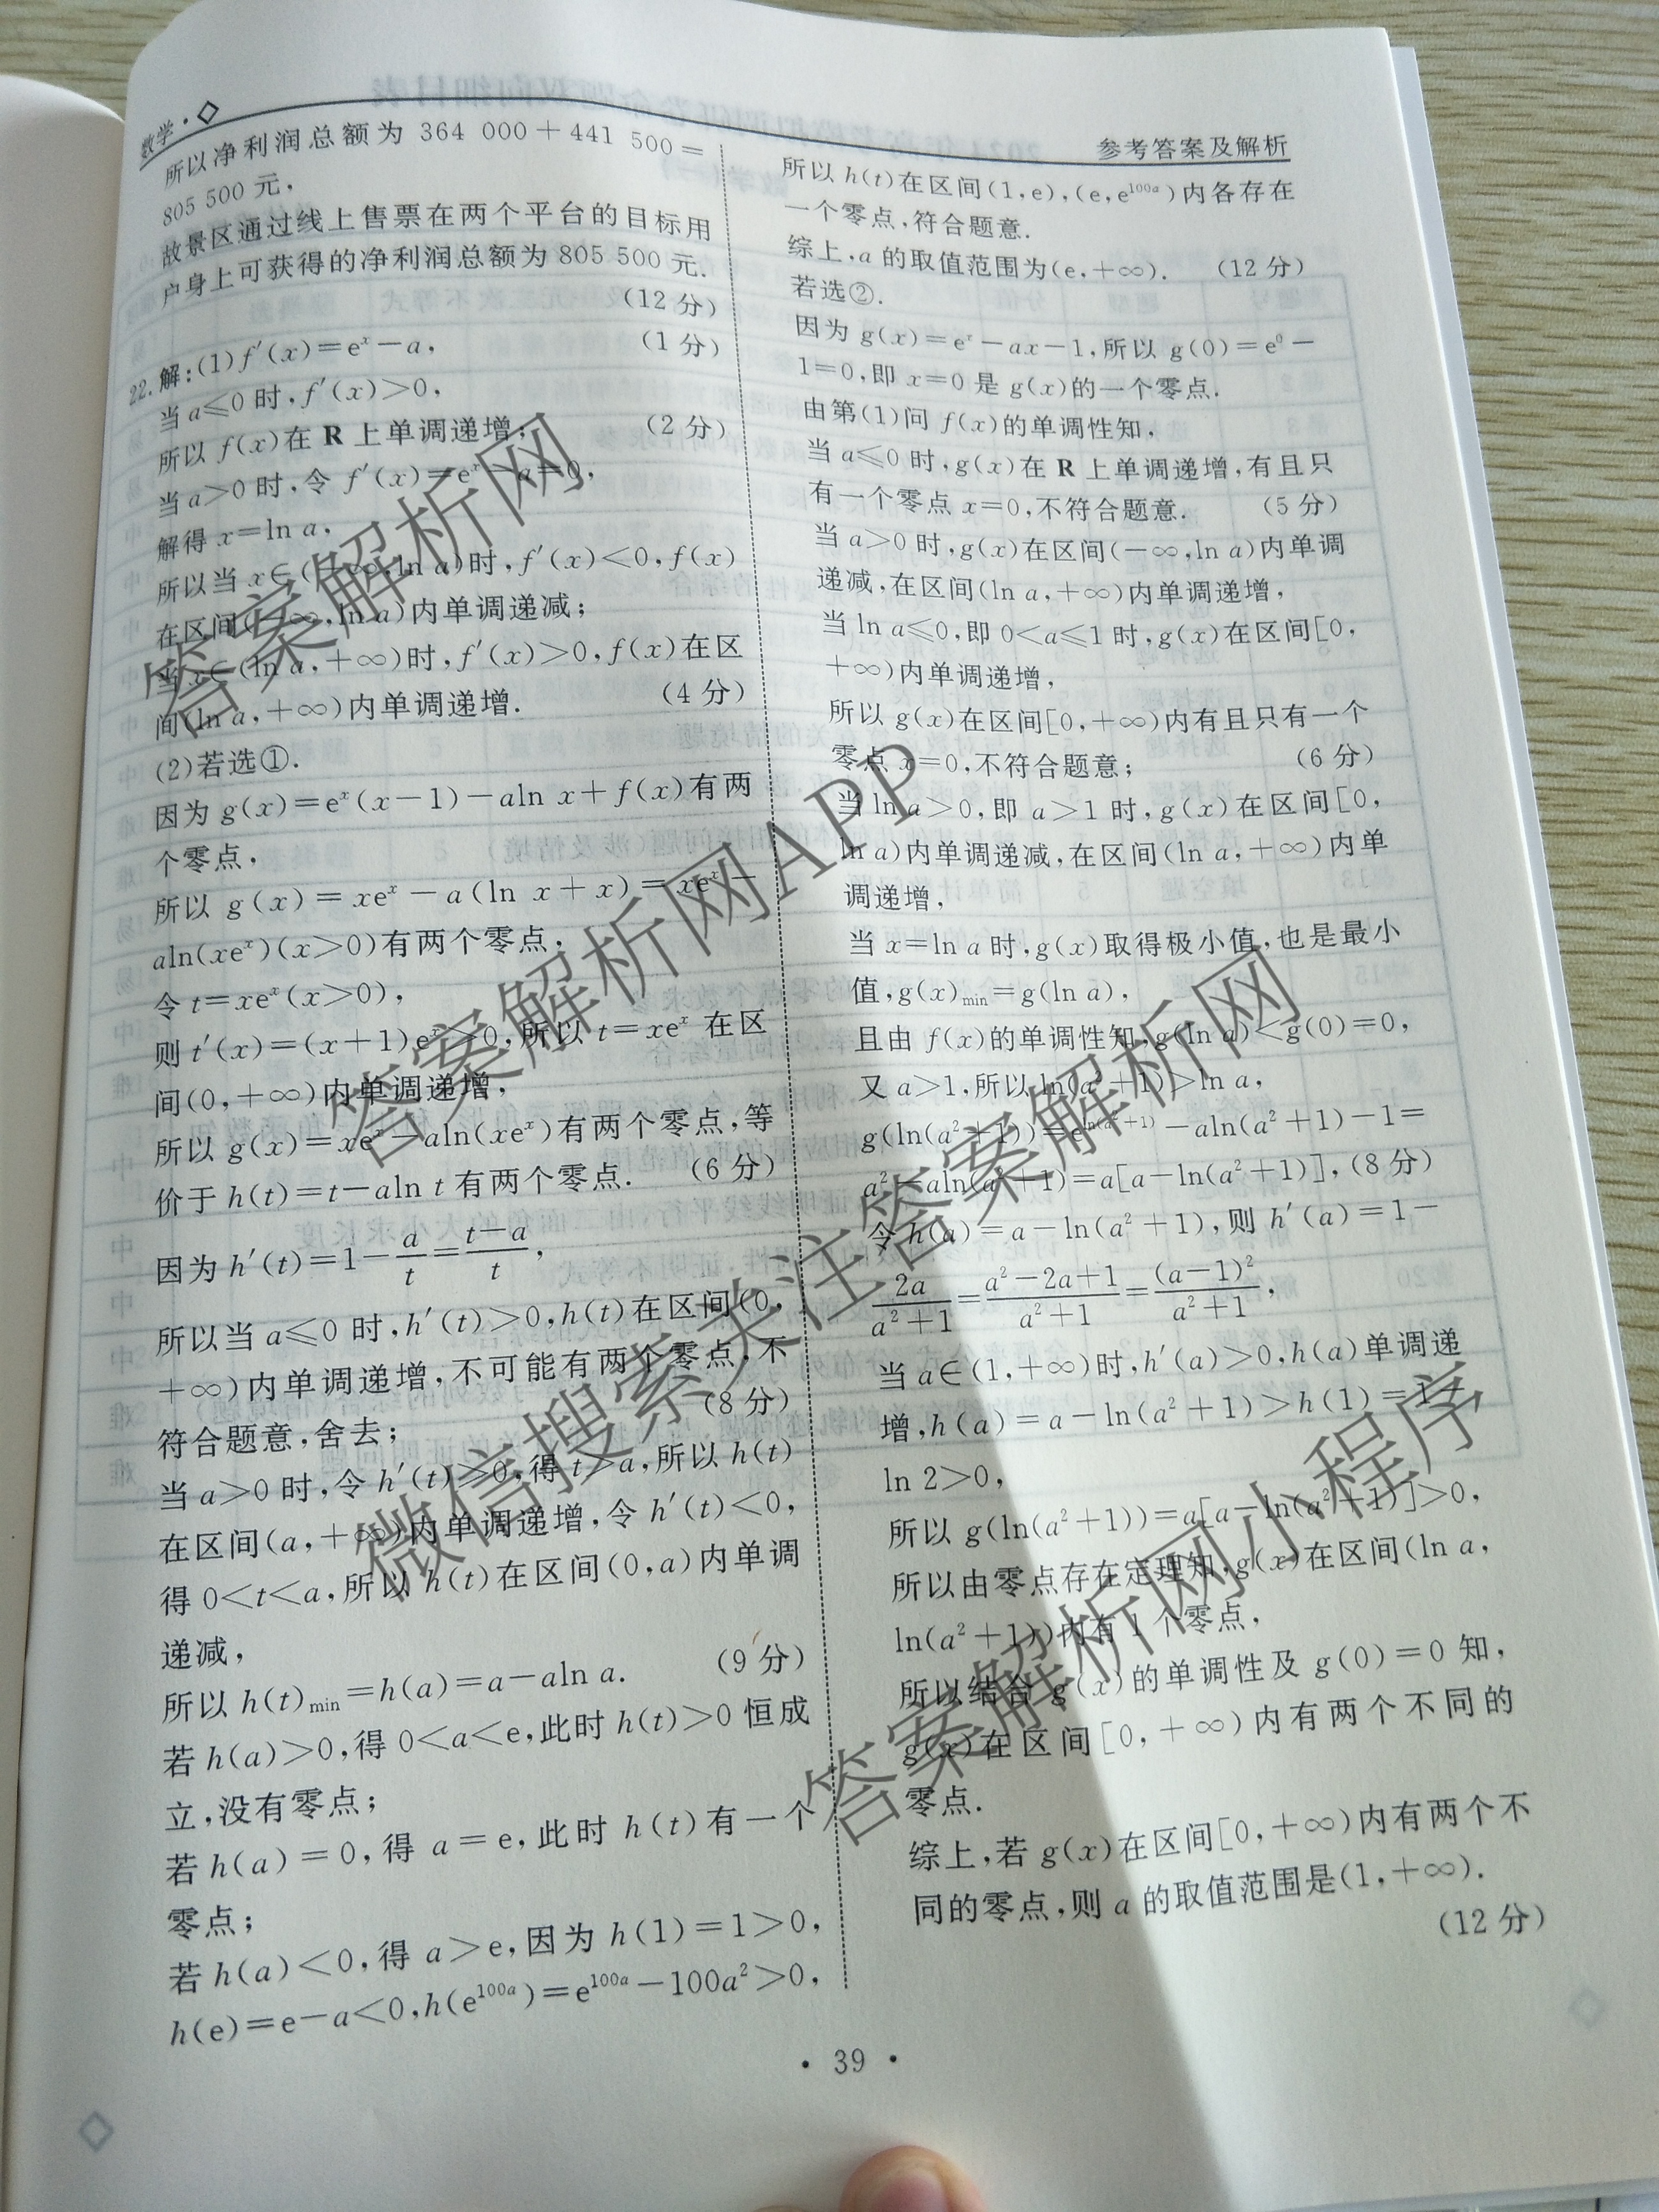 数学·
参考答案及解析
所以净利润总额为 364 000＋441 500＝
805 500 元，
故景区通过线上售票在两个平台的目标用
户身上可获得的净利润总额为 805 500 元.
(12 分)
22. 解：(1) f′(x)＝eˣ－a， (1 分)
当 a≤0 时，f′(x)>0，
所以 f(x)在 R 上单调递增； (2 分)
当 a>0 时，令 f′(x)＝eˣ－a＝0，
解得 x＝ln a，
所以当 x∈(－∞,ln a)时，f′(x)<0，f(x)
在区间(－∞,ln a)内单调递减；
当 x∈(ln a,＋∞)时，f′(x)>0，f(x)在区
间(ln a,＋∞)内单调递增. (4 分)
(2)若选①.
因为 g(x)＝eˣ(x－1)－aln x＋f(x)有两
个零点，
所以 g(x)＝xeˣ－a(ln x＋x)＝xeˣ－
aln(xeˣ)(x>0)有两个零点，
令 t＝xeˣ(x>0)，
则 t′(x)＝(x＋1)eˣ>0，所以 t＝xeˣ 在区
间(0,＋∞)内单调递增，
所以 g(x)＝xeˣ－aln(xeˣ)有两个零点，等
价于 h(t)＝t－aln t 有两个零点. (6 分)
因为 h′(t)＝1－a/t＝(t－a)/t，
所以当 a≤0 时，h′(t)>0，h(t)在区间(0,
＋∞)内单调递增，不可能有两个零点，不
符合题意，舍去； (8 分)
当 a>0 时，令 h′(t)>0，得 t>a，所以 h(t)
在区间(a,＋∞)内单调递增，令 h′(t)<0，
得 0<t<a，所以 h(t)在区间(0,a)内单调
递减， (9 分)
所以 h(t)min＝h(a)＝a－aln a.
若 h(a)>0，得 0<a<e，此时 h(t)>0 恒成
立，没有零点；
若 h(a)＝0，得 a＝e，此时 h(t)有一个
零点；
若 h(a)<0，得 a>e，因为 h(1)＝1>0，
h(e)＝e－a<0，h(e¹⁰⁰ᵃ)＝e¹⁰⁰ᵃ－100a²>0，
所以 h(t)在区间(1,e)，(e,e¹⁰⁰ᵃ)内各存在
一个零点，符合题意.
综上，a 的取值范围为(e,＋∞). (12 分)
若选②.
因为 g(x)＝eˣ－ax－1，所以 g(0)＝e⁰－
1＝0，即 x＝0 是 g(x)的一个零点.
由第(1)问 f(x)的单调性知，
当 a≤0 时，g(x)在 R 上单调递增，有且只
有一个零点 x＝0，不符合题意. (5 分)
当 a>0 时，g(x)在区间(－∞,ln a)内单调
递减，在区间(ln a,＋∞)内单调递增，
当 ln a≤0，即 0<a≤1 时，g(x)在区间[0,
＋∞)内单调递增，
所以 g(x)在区间[0,＋∞)内有且只有一个
零点 x＝0，不符合题意； (6 分)
当 ln a>0，即 a>1 时，g(x)在区间[0,
ln a)内单调递减，在区间(ln a,＋∞)内单
调递增，
当 x＝ln a 时，g(x)取得极小值，也是最小
值，g(x)min＝g(ln a)，
且由 f(x)的单调性知，g(ln a)<g(0)＝0，
又 a>1，所以 ln(a²＋1)>ln a，
g(ln(a²＋1))＝e^ln(a²＋1)－aln(a²＋1)－1＝
a²－aln(a²＋1)＝a[a－ln(a²＋1)]， (8 分)
令 h(a)＝a－ln(a²＋1)，则 h′(a)＝1－
2a/(a²＋1)＝(a²－2a＋1)/(a²＋1)＝(a－1)²/(a²＋1)，
当 a∈(1,＋∞)时，h′(a)>0，h(a)单调递
增，h(a)＝a－ln(a²＋1)>h(1)＝1－
ln 2>0，
所以 g(ln(a²＋1))＝a[a－ln(a²＋1)]>0，
所以由零点存在定理知，g(x)在区间(ln a,
ln(a²＋1))内有 1 个零点，
所以结合 g(x)的单调性及 g(0)＝0 知，
g(x)在区间[0,＋∞)内有两个不同的
零点.
综上，若 g(x)在区间[0,＋∞)内有两个不
同的零点，则 a 的取值范围是(1,＋∞).
(12 分)
· 39 ·
答案解析网
答案解析网APP
微信搜索关注答案解析网
答案解析网小程序